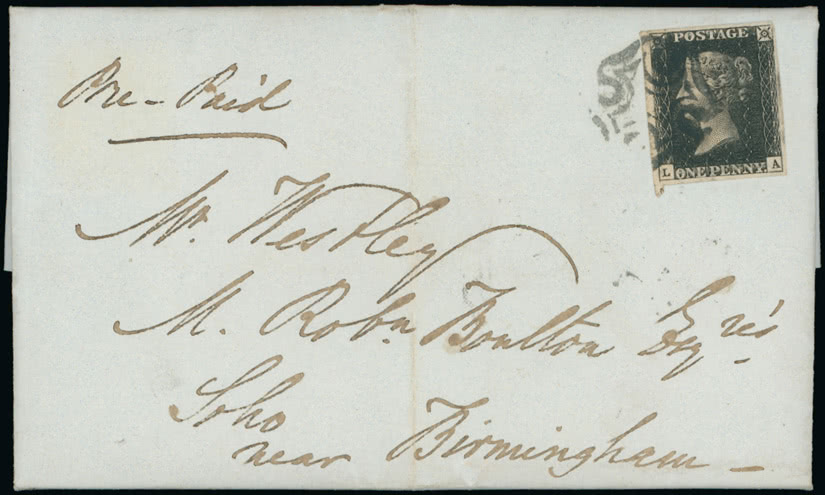 Pre-Paid
POSTAGE
L A
ONE PENNY.
Mr. Westley
M. Robn Boulton Esqre's
Soho
near Birmingham